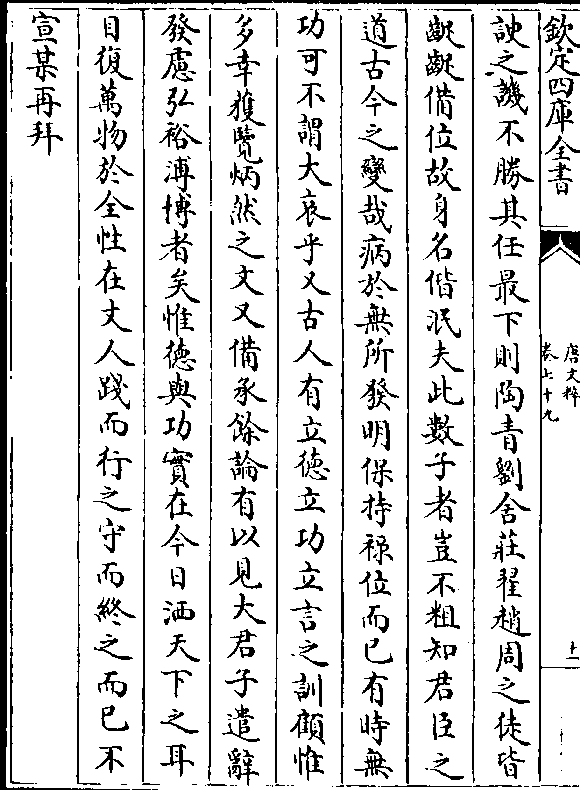 欽定四庫全書
唐文粹
卷七十九
十一
諛之譏不勝其任最下則陶青劉舍莊翟趙周之徒皆
齪齪備位故身名偕泯夫此數子者豈不粗知君臣之
道古今之變哉病於無所發明保持禄位而已有時無
功可不謂大哀乎又古人有立德立功立言之訓顧惟
多幸獲覽炳然之文又備承餘論有以見大君子遣辭
發慮弘裕溥博者矣惟德與功實在今日洒天下之耳
目復萬物於全性在丈人踐而行之守而終之而已不
宣某再拜